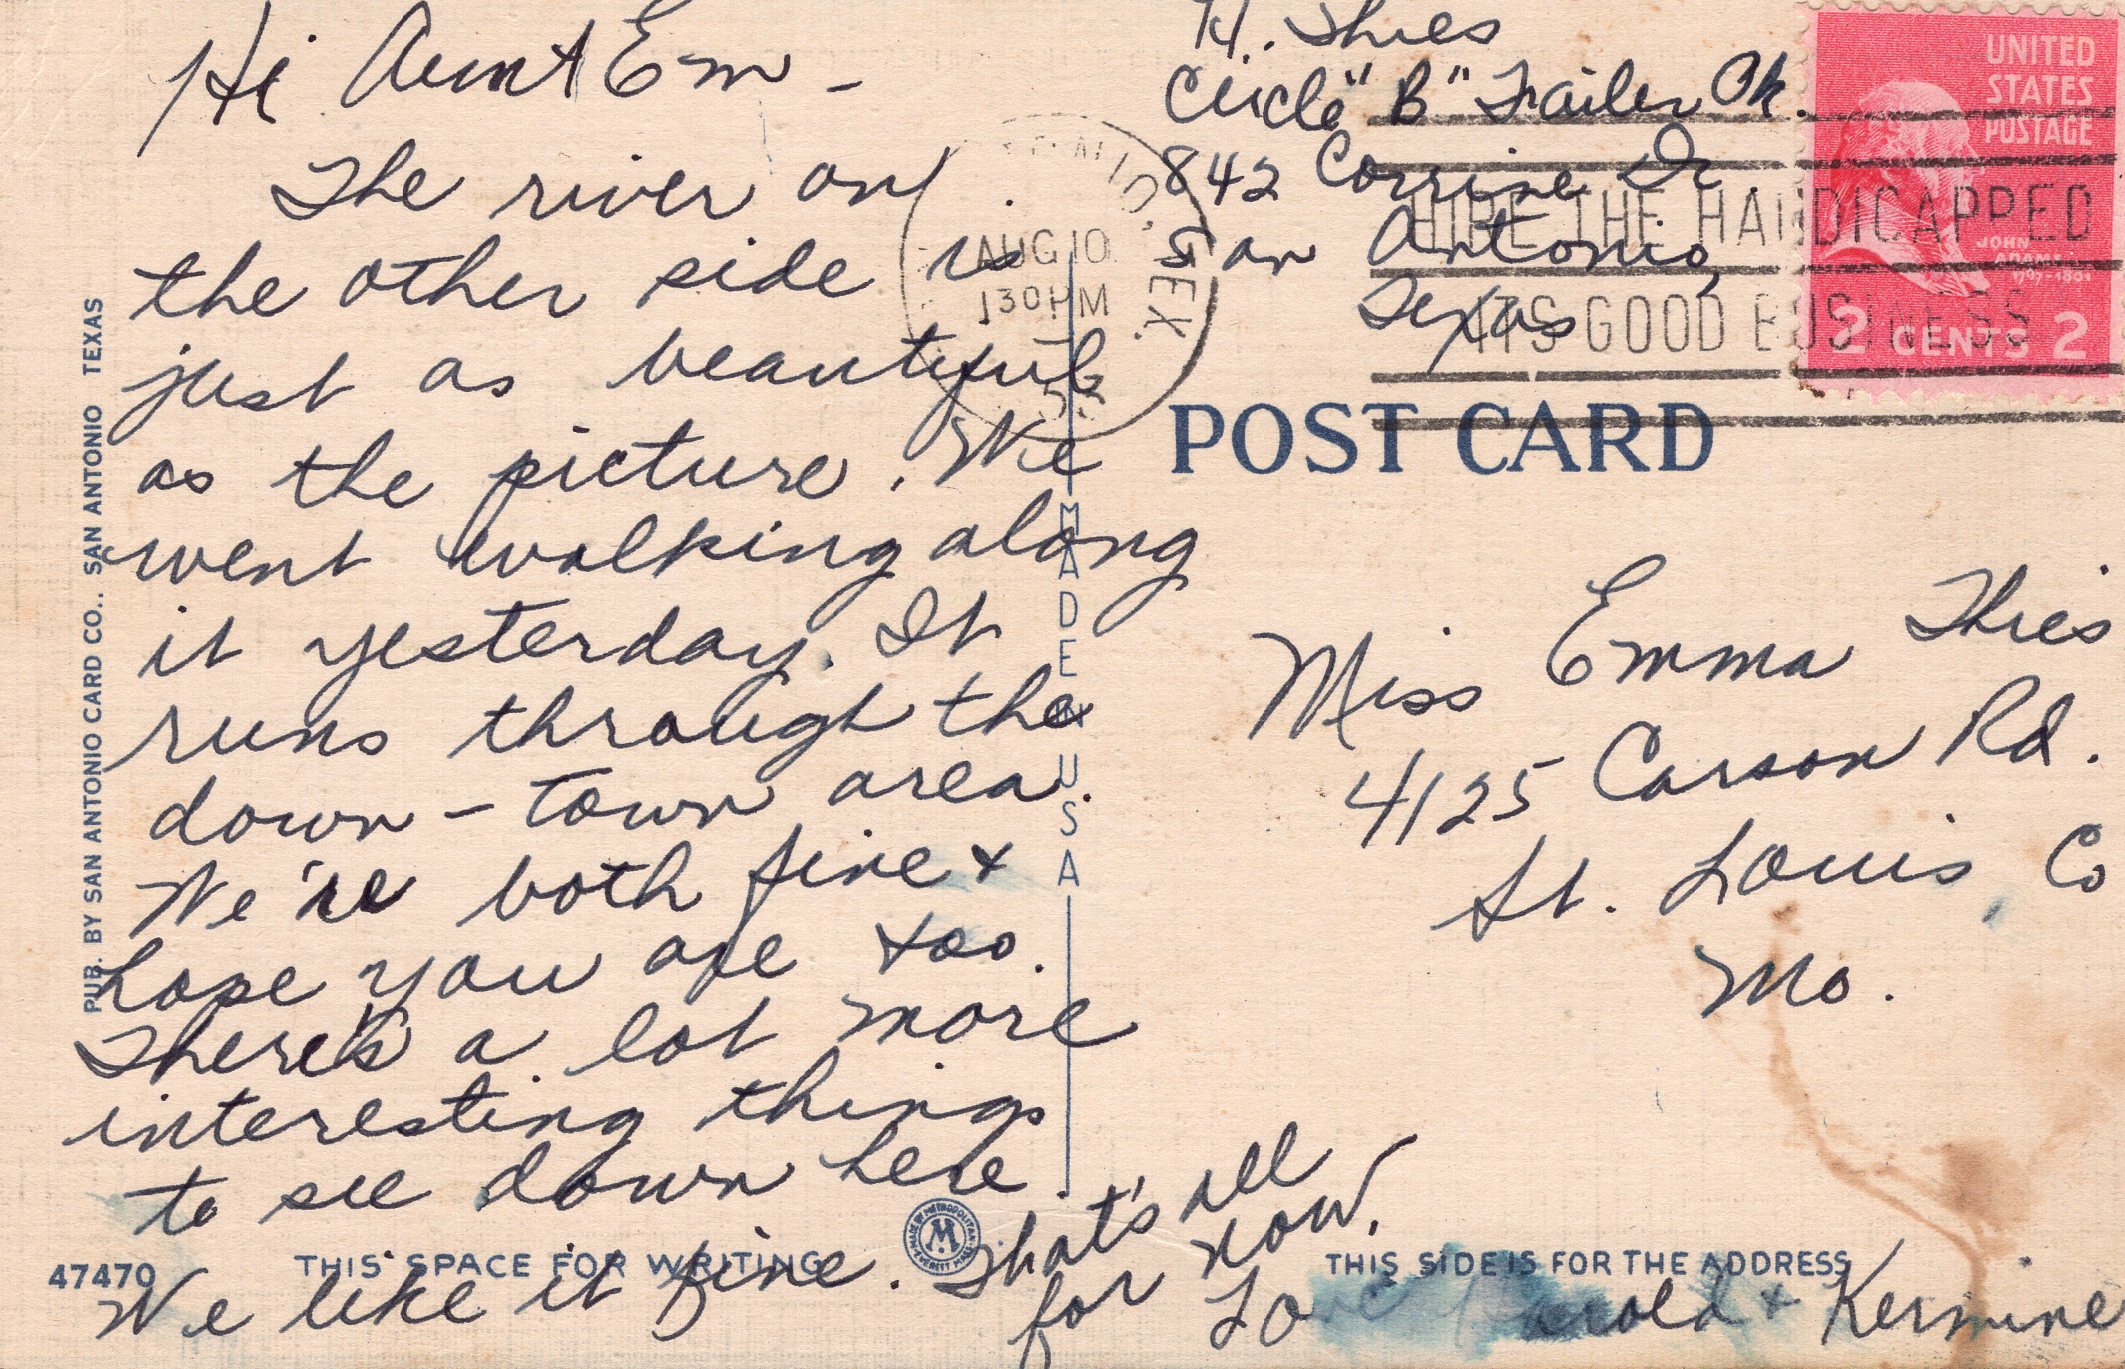 Hi Aunt Em –
The river on
the other side is
just as beautiful
as the picture. We
went walking along
it yesterday. It
runs through the
down-town area.
We're both fine +
hope you are too.
There's a lot more
interesting things
to see down here.
We like it fine. That's all
for now.
Love Harold + Kermine
H. Thies
Circle "B" Trailer Pk.
842 Corrine Dr
San Antonio,
Texas
UNITED
STATES
POSTAGE
JOHN
ADAMS
1797-1801
2 CENTS 2
TEX.
AUG 10
130 PM
HIRE THE HANDICAPPED
ITS GOOD BUSINESS
POST CARD
Miss Emma Thies
4125 Carson Rd.
St. Louis, Co
Mo.
PUB. BY SAN ANTONIO CARD CO., SAN ANTONIO TEXAS
MADE IN USA
47470
THIS SPACE FOR WRITING
M
THIS SIDE IS FOR THE ADDRESS